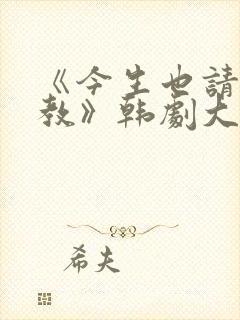 《今生也請
教》韓劇大
希夫